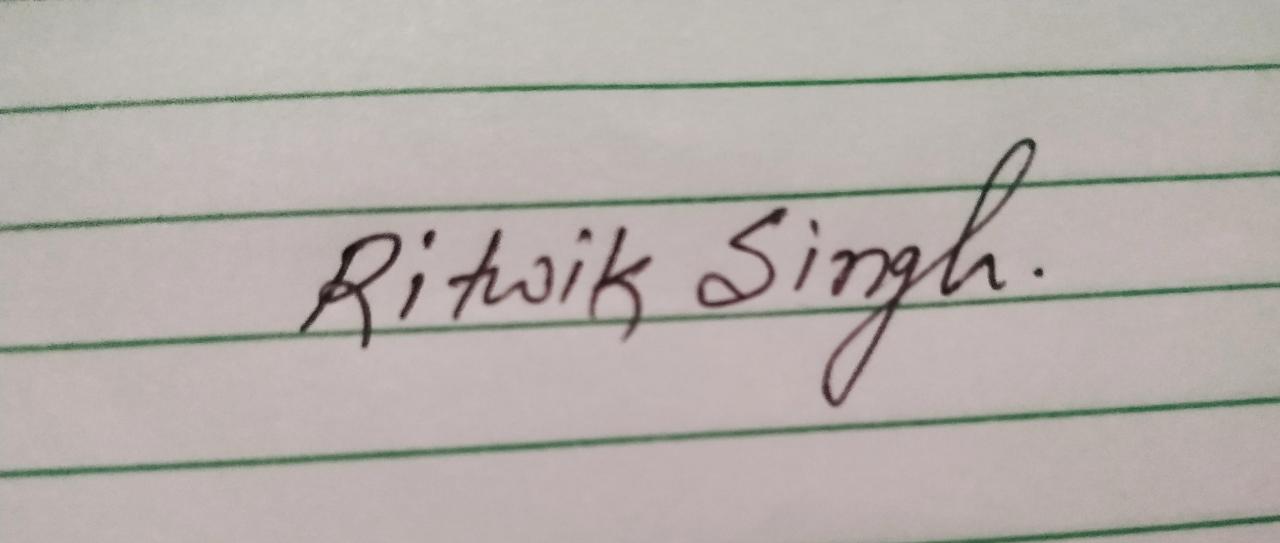 Ritwik Singh.